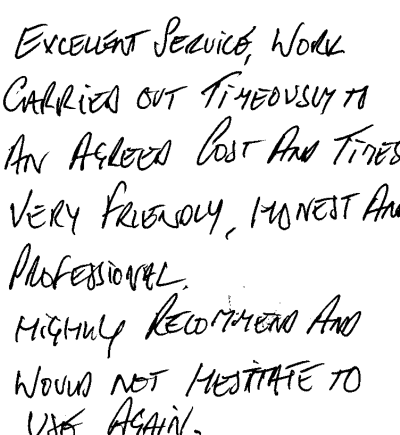 Excellent Service, Work
Carried out Timeously to
An Agreed Cost And Times
Very Friendly, Honest And
Professional.
Highly Recommend And
Would not Hesitate to
Use Again.